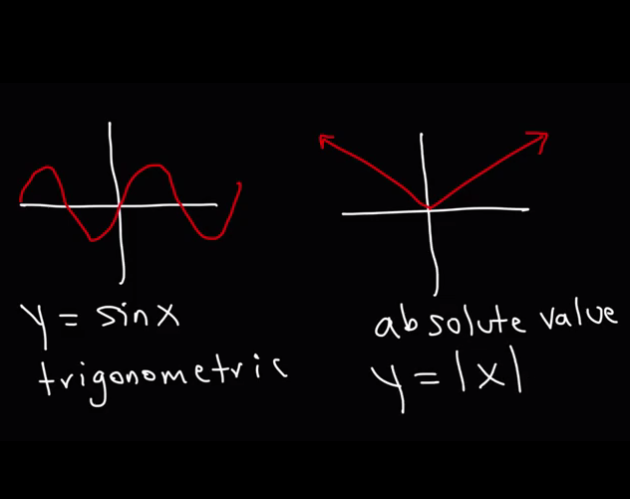 y = sinx
trigonometric
absolute value
y = |x|